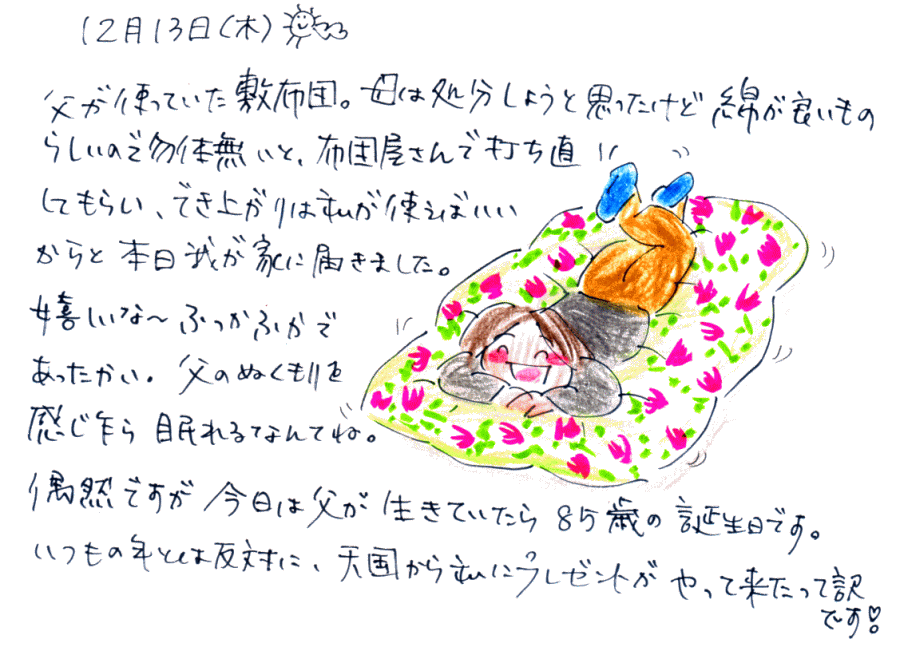 12月13日(木)
父が使っていた敷布団。母は処分しようと思ったけど綿が良いもの
らしいので勿体無いと、布団屋さんで打ち直
してもらい、でき上がりは私が使えばいい
からと本日我が家に届きました。
嬉しいな〜ふっかふかで
あったかい。父のぬくもりを
感じ乍ら眠れるなんてね。
偶然ですが今日は父が生きていたら85歳の誕生日です。
いつもの年とは反対に、天国から私にプレゼントがやって来たって訳
です!